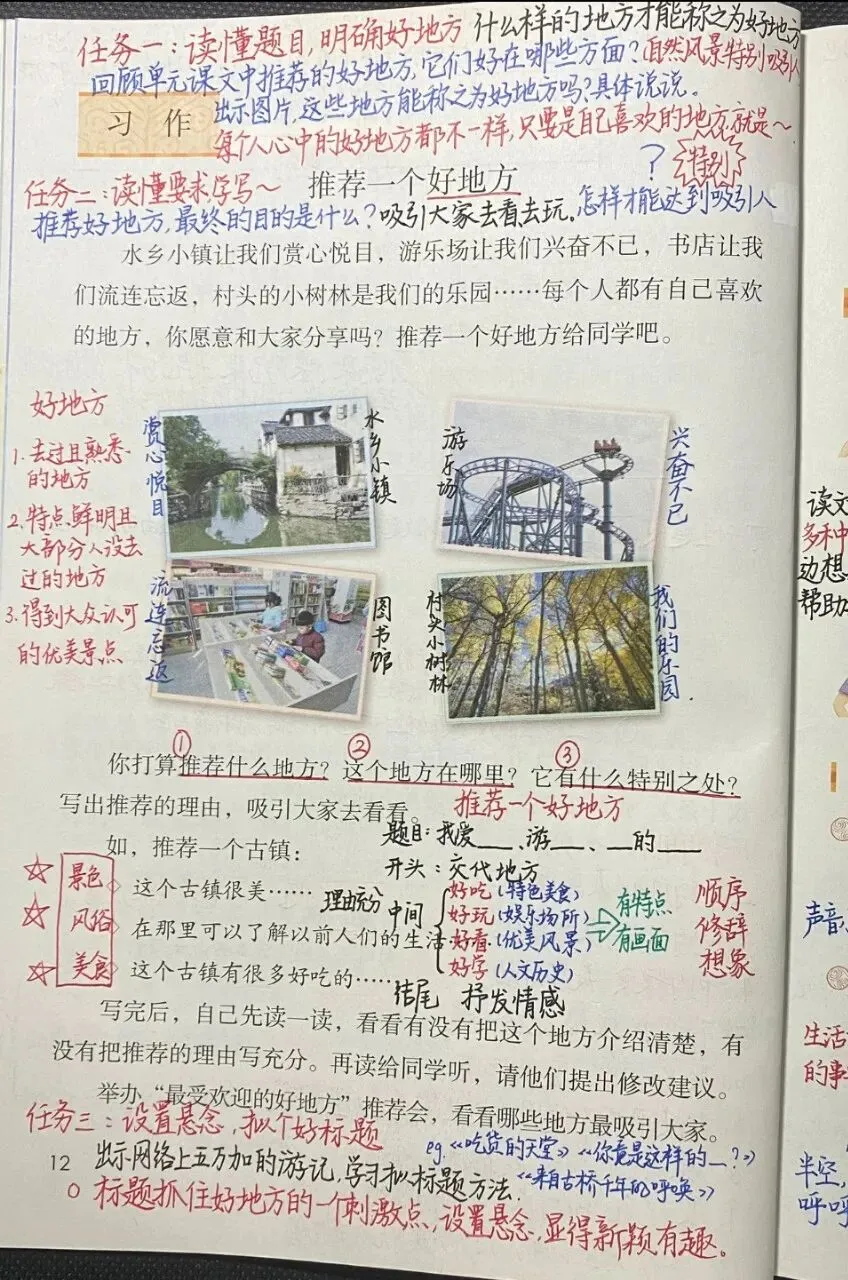 任务一：读懂题目，明确好地方 什么样的地方才能称之为好地方
回顾单元课文中推荐的好地方，它们好在哪些方面？自然风景特别吸引人
出示图片，这些地方能称之为好地方吗？具体说说。
习作
每个人心中的好地方都不一样，只要是自己喜欢的地方就是～
？ 特别
任务二：读懂要求学写～
推荐一个好地方
推荐好地方，最终的目的是什么？吸引大家去看去玩。怎样才能达到吸引人
水乡小镇让我们赏心悦目，游乐场让我们兴奋不已，书店让我
们流连忘返，村头的小树林是我们的乐园……每个人都有自己喜欢
的地方，你愿意和大家分享吗？推荐一个好地方给同学吧。
好地方
1.去过且熟悉
的地方
2.特点鲜明且
大部分人没去
过的地方
3.得到大众认可
的优美景点
赏心悦目
水乡小镇
游乐场
兴奋不已
流连忘返
图书馆
村头小树林
我们的乐园.
① ② ③
你打算推荐什么地方？这个地方在哪里？它有什么特别之处？
写出推荐的理由，吸引大家去看看。
推荐一个好地方
题目：我爱___、游___、___的___
如，推荐一个古镇：
开头：交代地方
景色
风俗
美食
这个古镇很美……
在那里可以了解以前人们的生活
这个古镇有很多好吃的……
理由充分
中间
好吃（特色美食）
好玩（娱乐场所）
好看（优美风景）
好学（人文历史）
有特点
有画面
顺序
修辞
想象
结尾 抒发情感
写完后，自己先读一读，看看有没有把这个地方介绍清楚，有
没有把推荐的理由写充分。再读给同学听，请他们提出修改建议。
举办“最受欢迎的好地方”推荐会，看看哪些地方最吸引大家。
任务三：设置悬念，拟个好标题
eg.《吃货的天堂》《你竟是这样的__？》
12
出示网络上五万加的游记，学习拟标题方法.
《来自古桥千年的呼唤》
标题抓住好地方的一个刺激点，设置悬念，显得新颖有趣。
读文
多种
动想
帮助
声音
生活
的事
半空，
呼呼